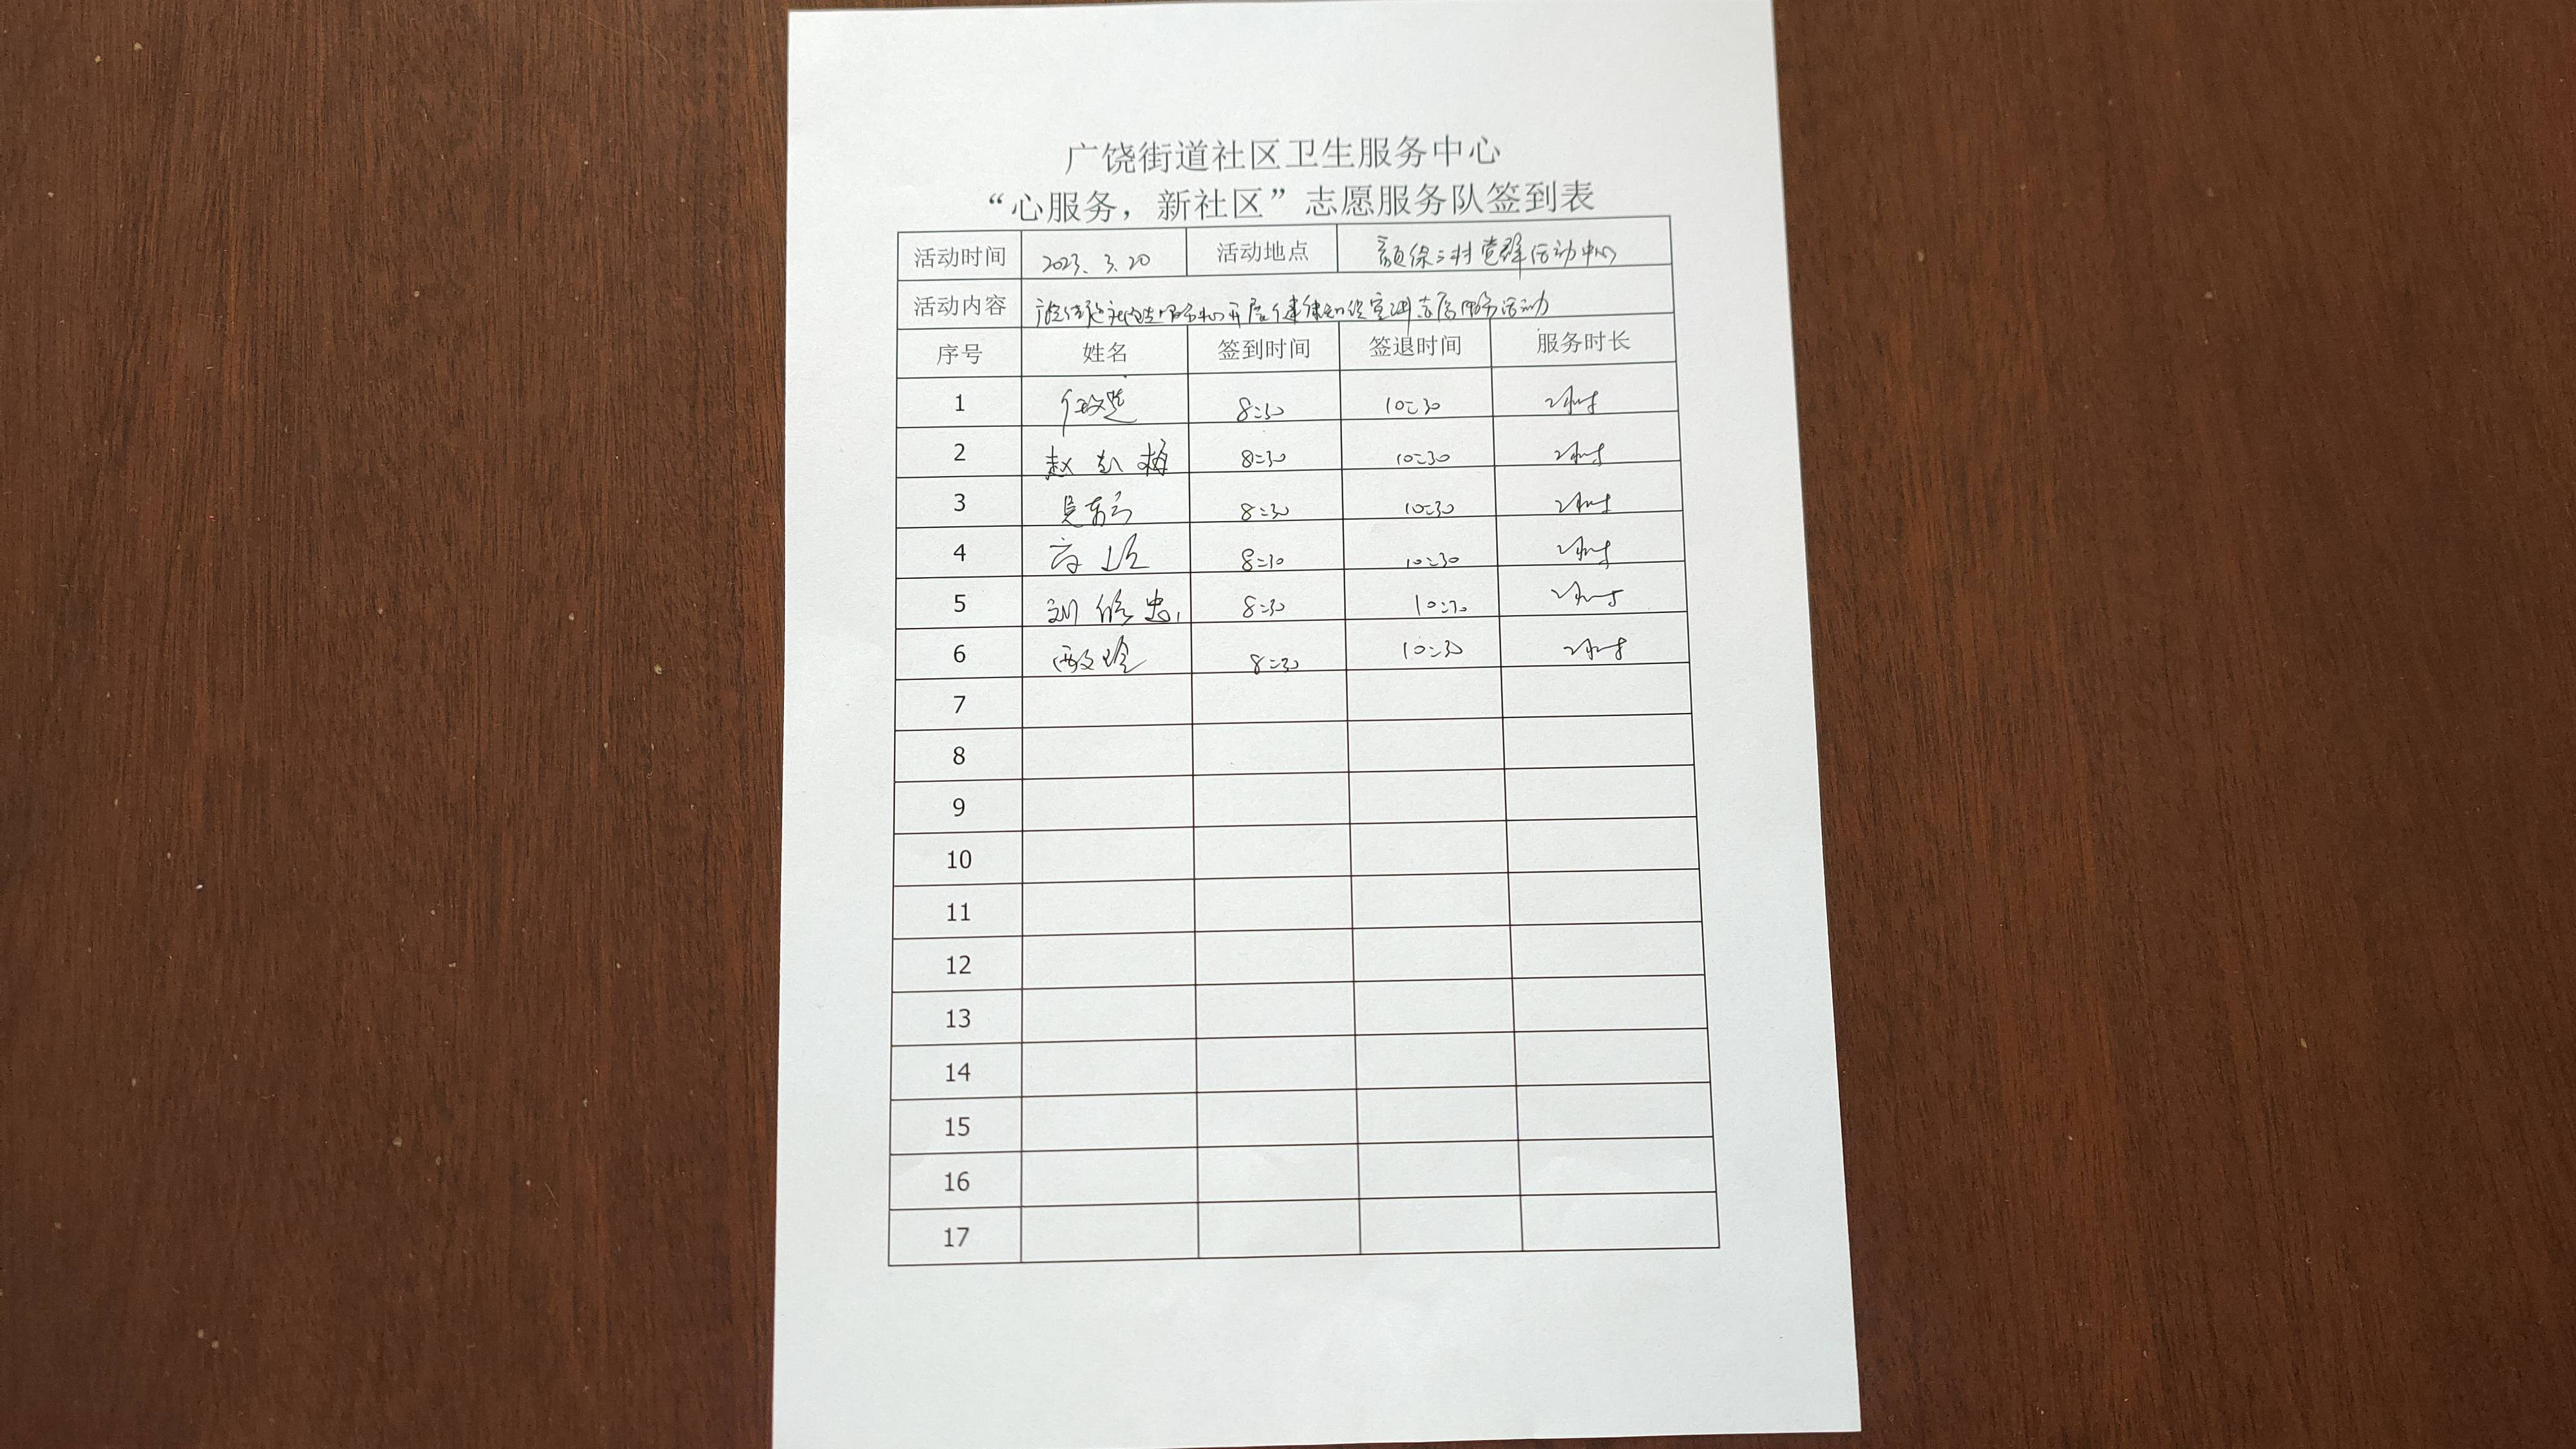 广饶街道社区卫生服务中心
“心服务，新社区”志愿服务队签到表
活动时间 2023.3.20 活动地点 颜徐三村党群活动中心
活动内容 广饶街道社区卫生服务中心开展健康知识宣讲志愿服务活动
序号 姓名 签到时间 签退时间 服务时长
1 8:30 10:30 2小时
2 赵 梅 8:30 10:30 2小时
3 8:30 10:30 2小时
4 8:30 10:30 2小时
5 刘修忠 8:30 10:30 2小时
6 8:30 10:30 2小时
7
8
9
10
11
12
13
14
15
16
17